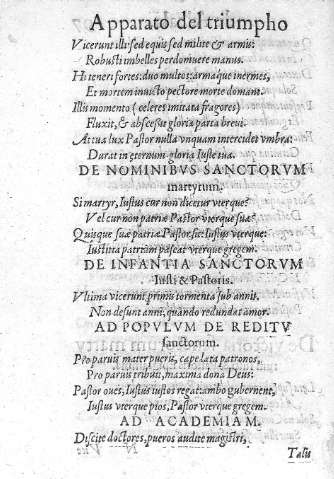 Apparato del triumpho
Vicerunt illi: sed equis sed milite & armis:
Robusti imbelles perdomuere manus.
Hi teneri fortes: duo multos: armaque inermes,
Et mortem inuicto pectore morte domant.
Illis momento (celeres imitata fragores)
Fluxit, & abscessit gloria parta breui.
At tua lux Pastor nulla vnquam intercidet vmbra:
Durat in eternum gloria Iuste tua.
DE NOMINIBVS SANCTORVM
martyrum.
Si martyr, Iustus cur non dicetur vterque?
Vel cur non patriæ Pastor vterque suæ?
Quisque suæ patriæ Pastor, sit Iustus vterque:
Iustitia patriam pascat vterque gregem.
DE INFANTIA SANCTORVM
Iusti & Pastoris.
Vltima vicerunt primis tormenta sub annis.
Non desunt anni, quando redundat amor.
AD POPVLVM DE REDITV
sanctorum.
Pro paruis mater pueris, cape lata patronos,
Pro paruis tribuit, maxima dona Deus:
Pastor oues, Iustus iustos regat: ambo gubernent,
Iustus vterque pios, Pastor vterque gregem.
AD ACADEMIAM.
Discite doctores, pueros audite magistri,
Talis